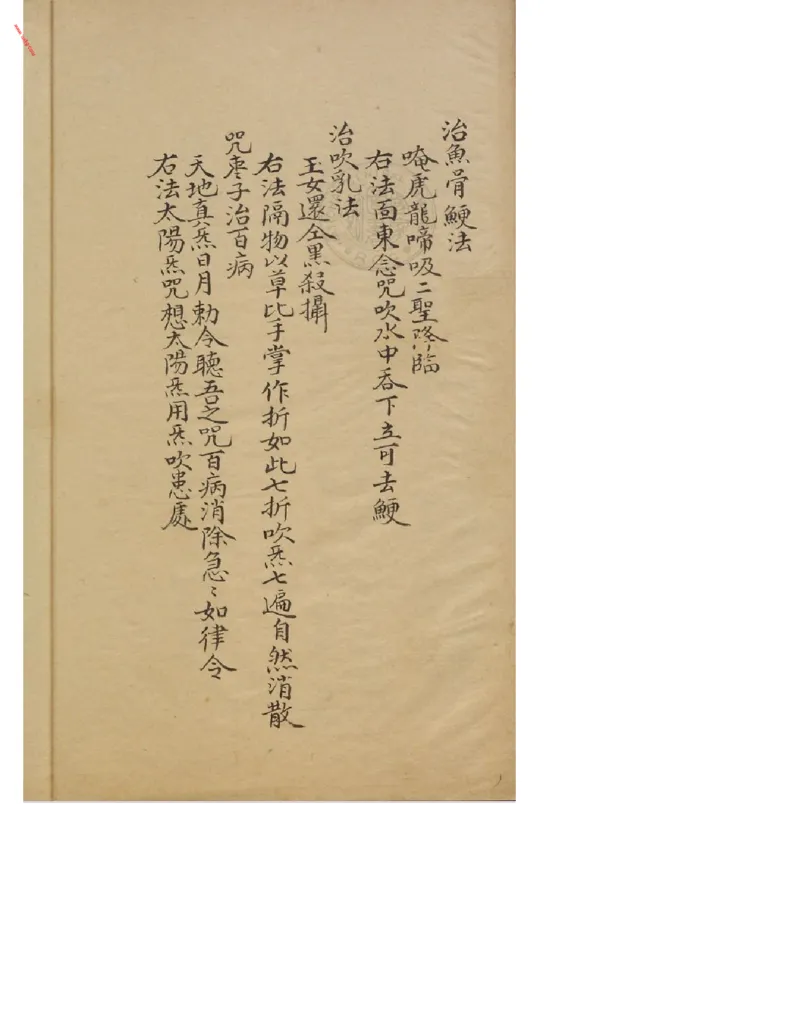 治魚骨鯁法
唵虎龍啼吸二聖降臨
右法面東念咒吹水中吞下立可去鯁
治吹乳法
玉女還仝黒殺攝
右法隔物以草比手掌作折如此七折吹炁七遍自然消散
咒枣子治百病
天地真炁日月勅令聽吾之咒百病消除急〻如律令
右法太陽炁咒想太陽炁用炁吹患處